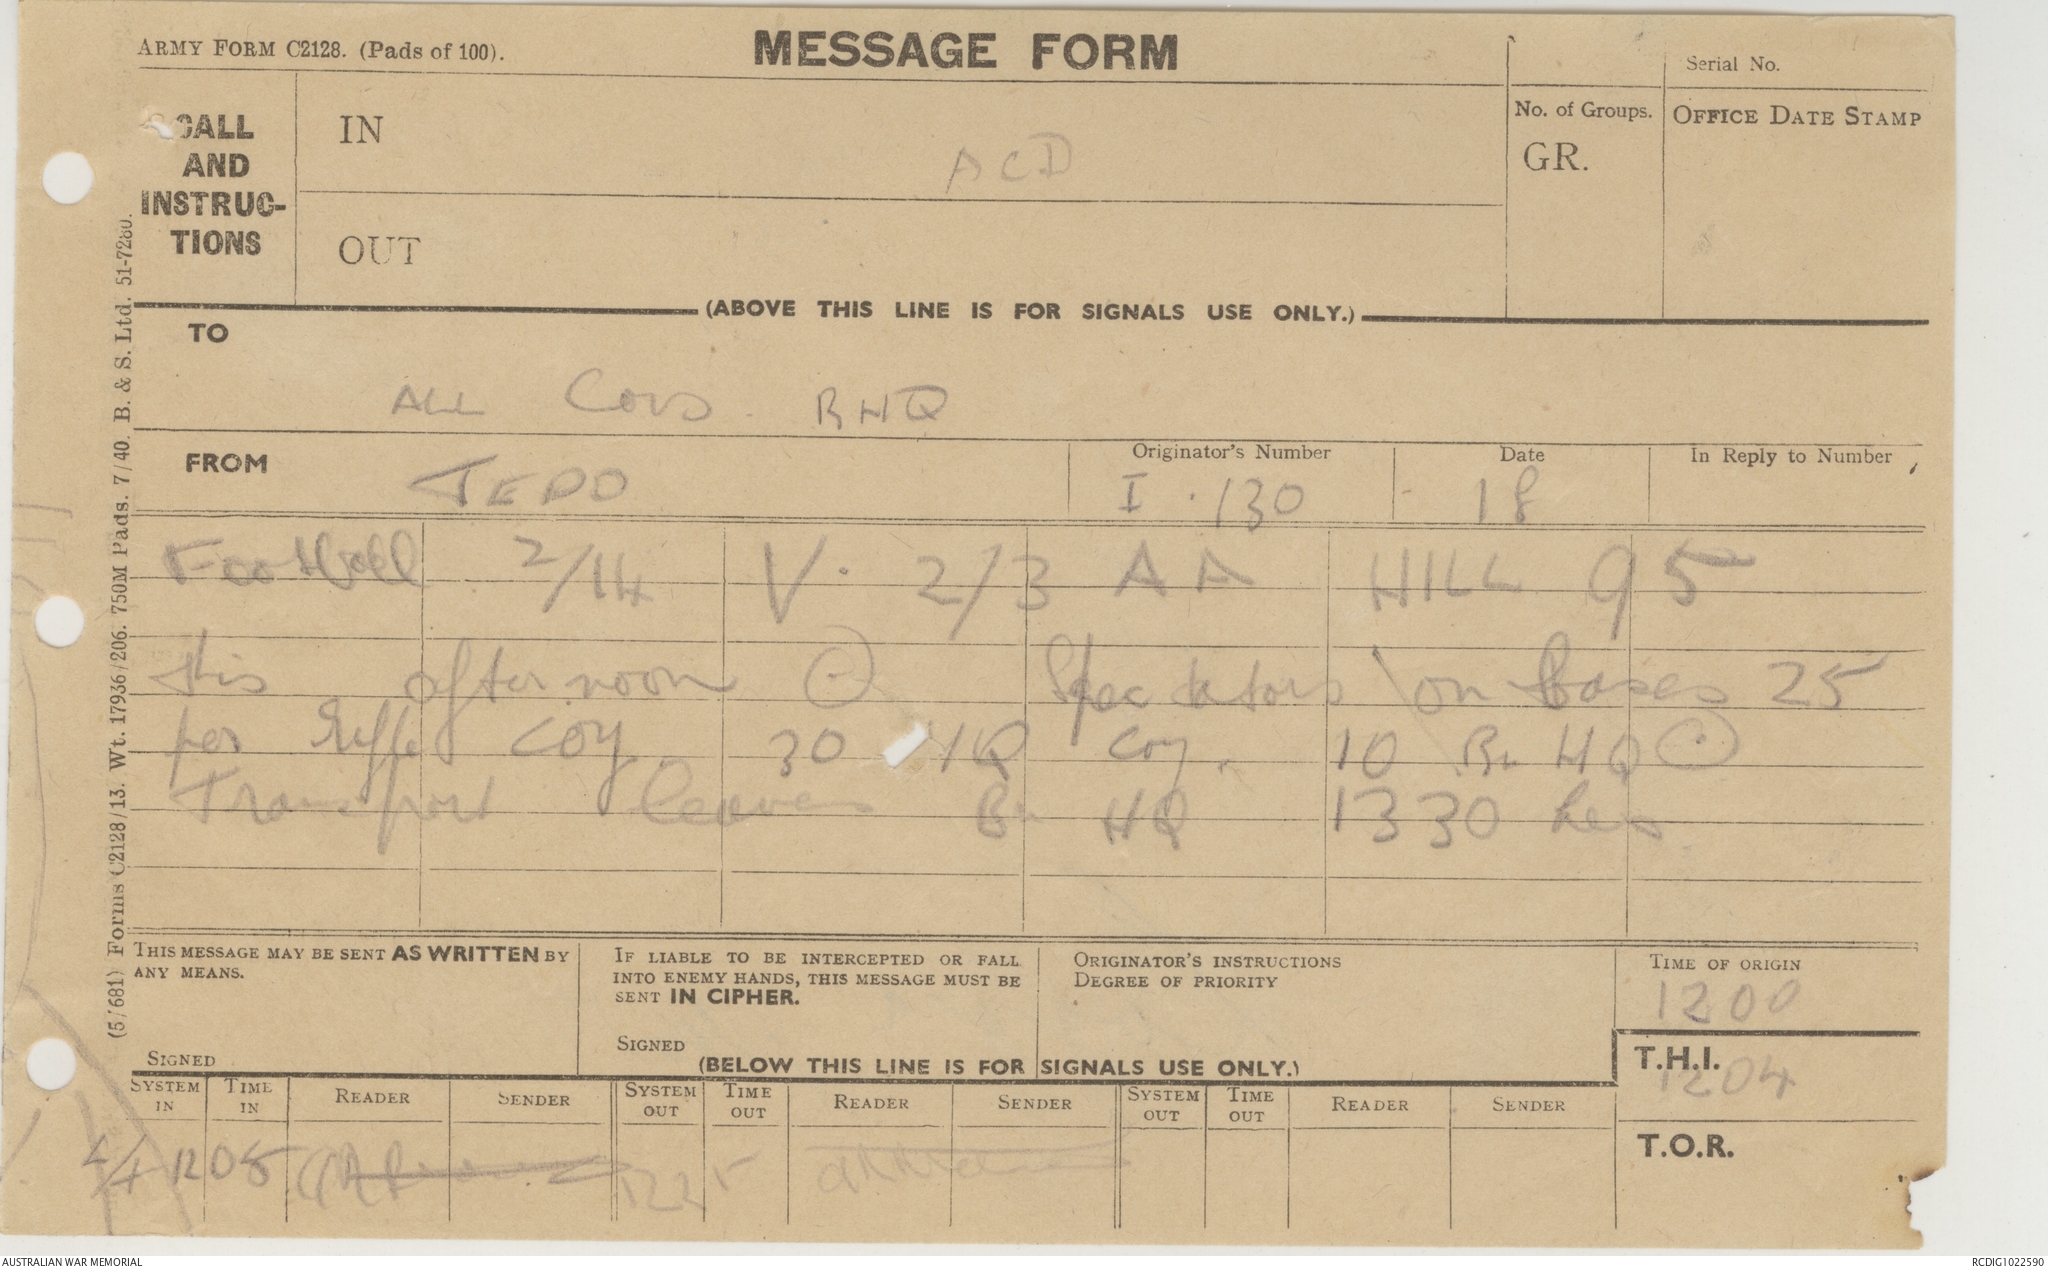 ARMY FORM C2128. (Pads of 100).
MESSAGE FORM
Serial No.
CALL AND INSTRUC- TIONS
IN
ACD
No. of Groups.
GR.
OFFICE DATE STAMP
OUT
(ABOVE THIS LINE IS FOR SIGNALS USE ONLY.)
TO
ALL Coys. BHQ
FROM
JEDO
Originator's Number
I.130
Date
18
In Reply to Number
Football 2/14 V. 2/3 AA HILL 95
this afternoon ⊙ Spectators on bases 25
per Coy 30 HQ Coy. 10 Bn HQ ⊙
Transport leaves Bn HQ 1330 hrs
THIS MESSAGE MAY BE SENT AS WRITTEN BY ANY MEANS.
SIGNED
IF LIABLE TO BE INTERCEPTED OR FALL INTO ENEMY HANDS, THIS MESSAGE MUST BE SENT IN CIPHER.
SIGNED
ORIGINATOR'S INSTRUCTIONS
DEGREE OF PRIORITY
TIME OF ORIGIN
1200
(BELOW THIS LINE IS FOR SIGNALS USE ONLY.)
T.H.I.
1204
T.O.R.
SYSTEM IN TIME IN READER SENDER SYSTEM OUT TIME OUT READER SENDER SYSTEM OUT TIME OUT READER SENDER
1208 1225
(5/681) Forms C2128/13. Wt. 17936/206. 750M Pads. 7/40. B. & S. Ltd. 51-7280.
AUSTRALIAN WAR MEMORIAL
RCDIG1022590